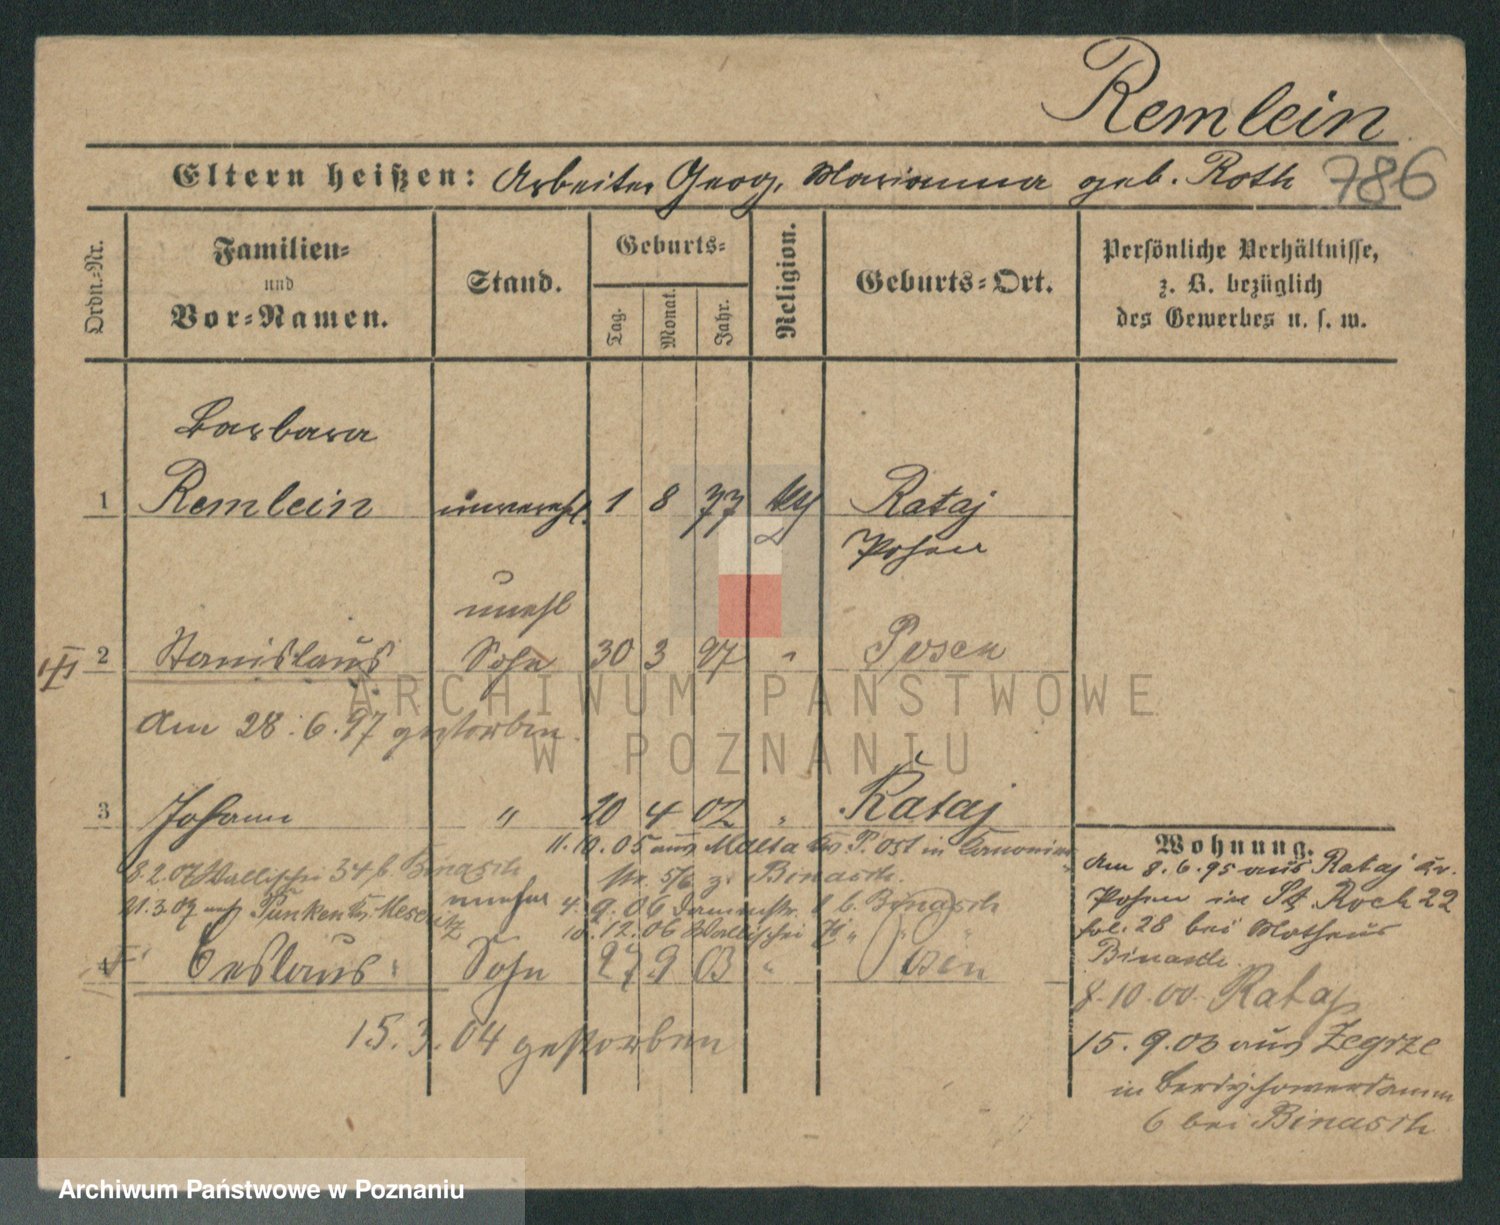 Remlein
Eltern heißen: Arbeiter Georg, Marianna geb. Roth 786
Ordn.-Nr.
Familien- und Vor-Namen.
Stand.
Geburts-
Tag.
Monat.
Jahr.
Religion.
Geburts-Ort.
Persönliche Verhältnisse,
z. B. bezüglich
des Gewerbes u. s. w.
Barbara
1 Remlein unverehl. 1 8 77 Rataj
Posen
unehl
2 Stanislaus Sohn 30 3 97 " Posen
Am 28.6.97 gestorben.
3 Johann " 20 4 02 " Rataj
11.10.05 aus Malta Kr P. Ost in
8.2.07 Wallischei 34 b. Binasch
5/6 z. Binasch.
21.3.07 nach Kr. Meseritz
unehel 4.9.06 Dammstr. 1 b. Binasch
10.12.06 Wallischei " " "
4 Ceslaus Sohn 27 9 03 " Posen
15.3.04 gestorben
Wohnung.
Am 8.6.95 aus Rataj Kr.
Posen in St. Roch 22
fol. 28 bei Matheus
Binasch
8.10.00 Rataj
15.9.03 aus Zegrze
in Berdychowerdamm
6 bei Binasch
ARCHIWUM PAŃSTWOWE
W POZNANIU
Archiwum Państwowe w Poznaniu